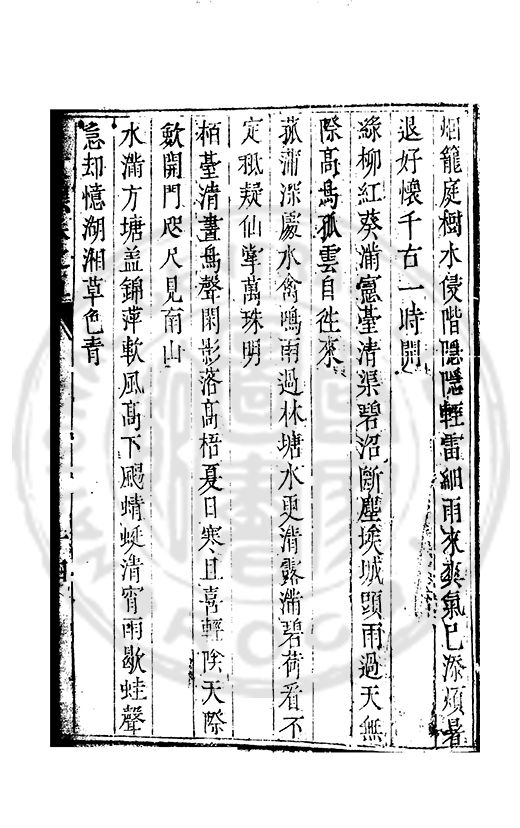 烟籠庭樹水侵階隱隱輕雷細雨来爽氣已添煩暑
退好懷千古一時開
綠柳紅葵滿憲臺清渠碧沼斷塵埃城頭雨過天無
際高鳥孤雲自往來
菰蒲深處水禽鳴雨過林塘水更清露滿碧荷看不
定秪疑仙掌萬珠明
栢臺清晝鳥聲閑影落高梧夏日寒且喜輕陰天際
歛開門咫尺見南山
水滿方塘蓋錦萍軟風高下颺蜻蜓清宵雨歇蛙聲
急却憶湖湘草色青